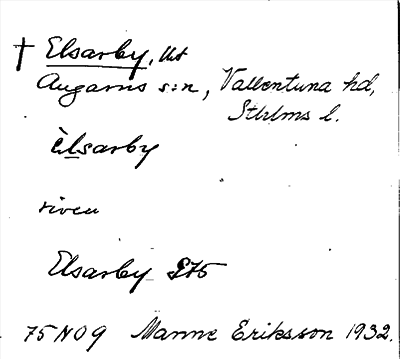 † Elsarby, Ut
Angarns s:n, Vallentuna hd,
Sthlms l.
èlsarby
riven
Elsarby
75 NO 9 Manne Eriksson 1932.